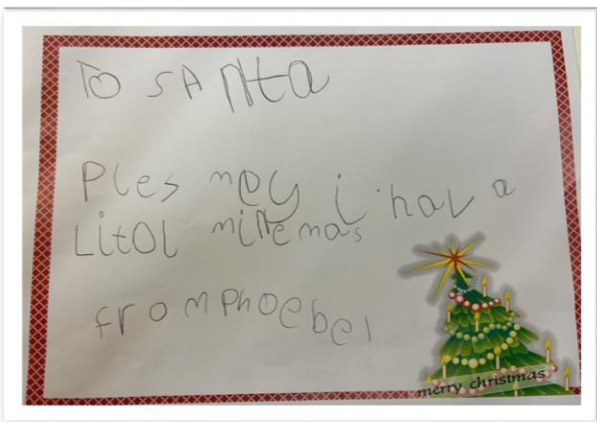 To SANta
Ples may i hav a
Litol miNemas
from phoebe
merry christmas